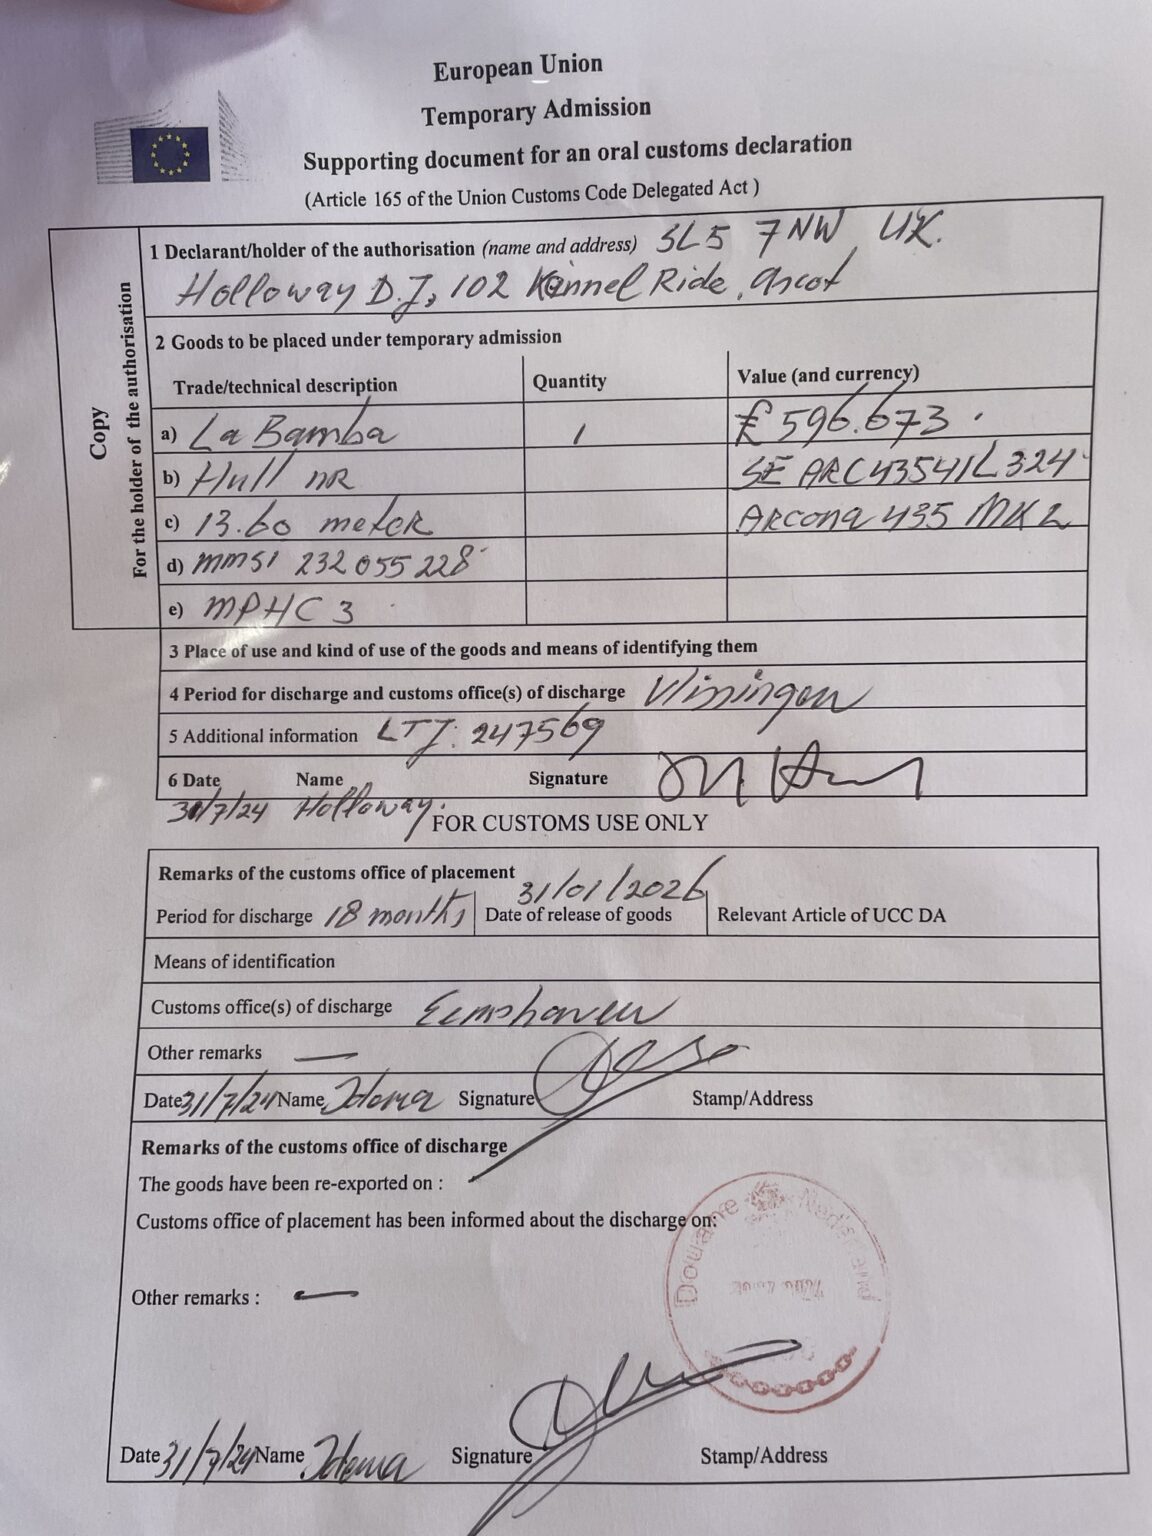 European Union
Temporary Admission
Supporting document for an oral customs declaration
(Article 165 of the Union Customs Code Delegated Act )
Copy
For the holder of the authorisation
1 Declarant/holder of the authorisation (name and address) SL5 7NW UK.
Holloway D.J, 102 Kennel Ride, Ascot
2 Goods to be placed under temporary admission
Trade/technical description Quantity Value (and currency)
a) La Bamba 1 £ 596.673
b) Hull nR SE ARC43541L324
c) 13.60 meter Arcona 435 MK2
d) MMSI 232055228
e) MPHC3
3 Place of use and kind of use of the goods and means of identifying them
4 Period for discharge and customs office(s) of discharge Vlissingen
5 Additional information LTJ: 247569
6 Date Name Signature
31/7/24 Holloway.
FOR CUSTOMS USE ONLY
Remarks of the customs office of placement
31/01/2026
Period for discharge 18 months Date of release of goods Relevant Article of UCC DA
Means of identification
Customs office(s) of discharge Eemshaven
Other remarks —
Date 31/7/24 Name Idema Signature Stamp/Address
Remarks of the customs office of discharge
The goods have been re-exported on :
Customs office of placement has been informed about the discharge on:
Douane Nederland
Other remarks : —
Date 31/7/24 Name Idema Signature Stamp/Address